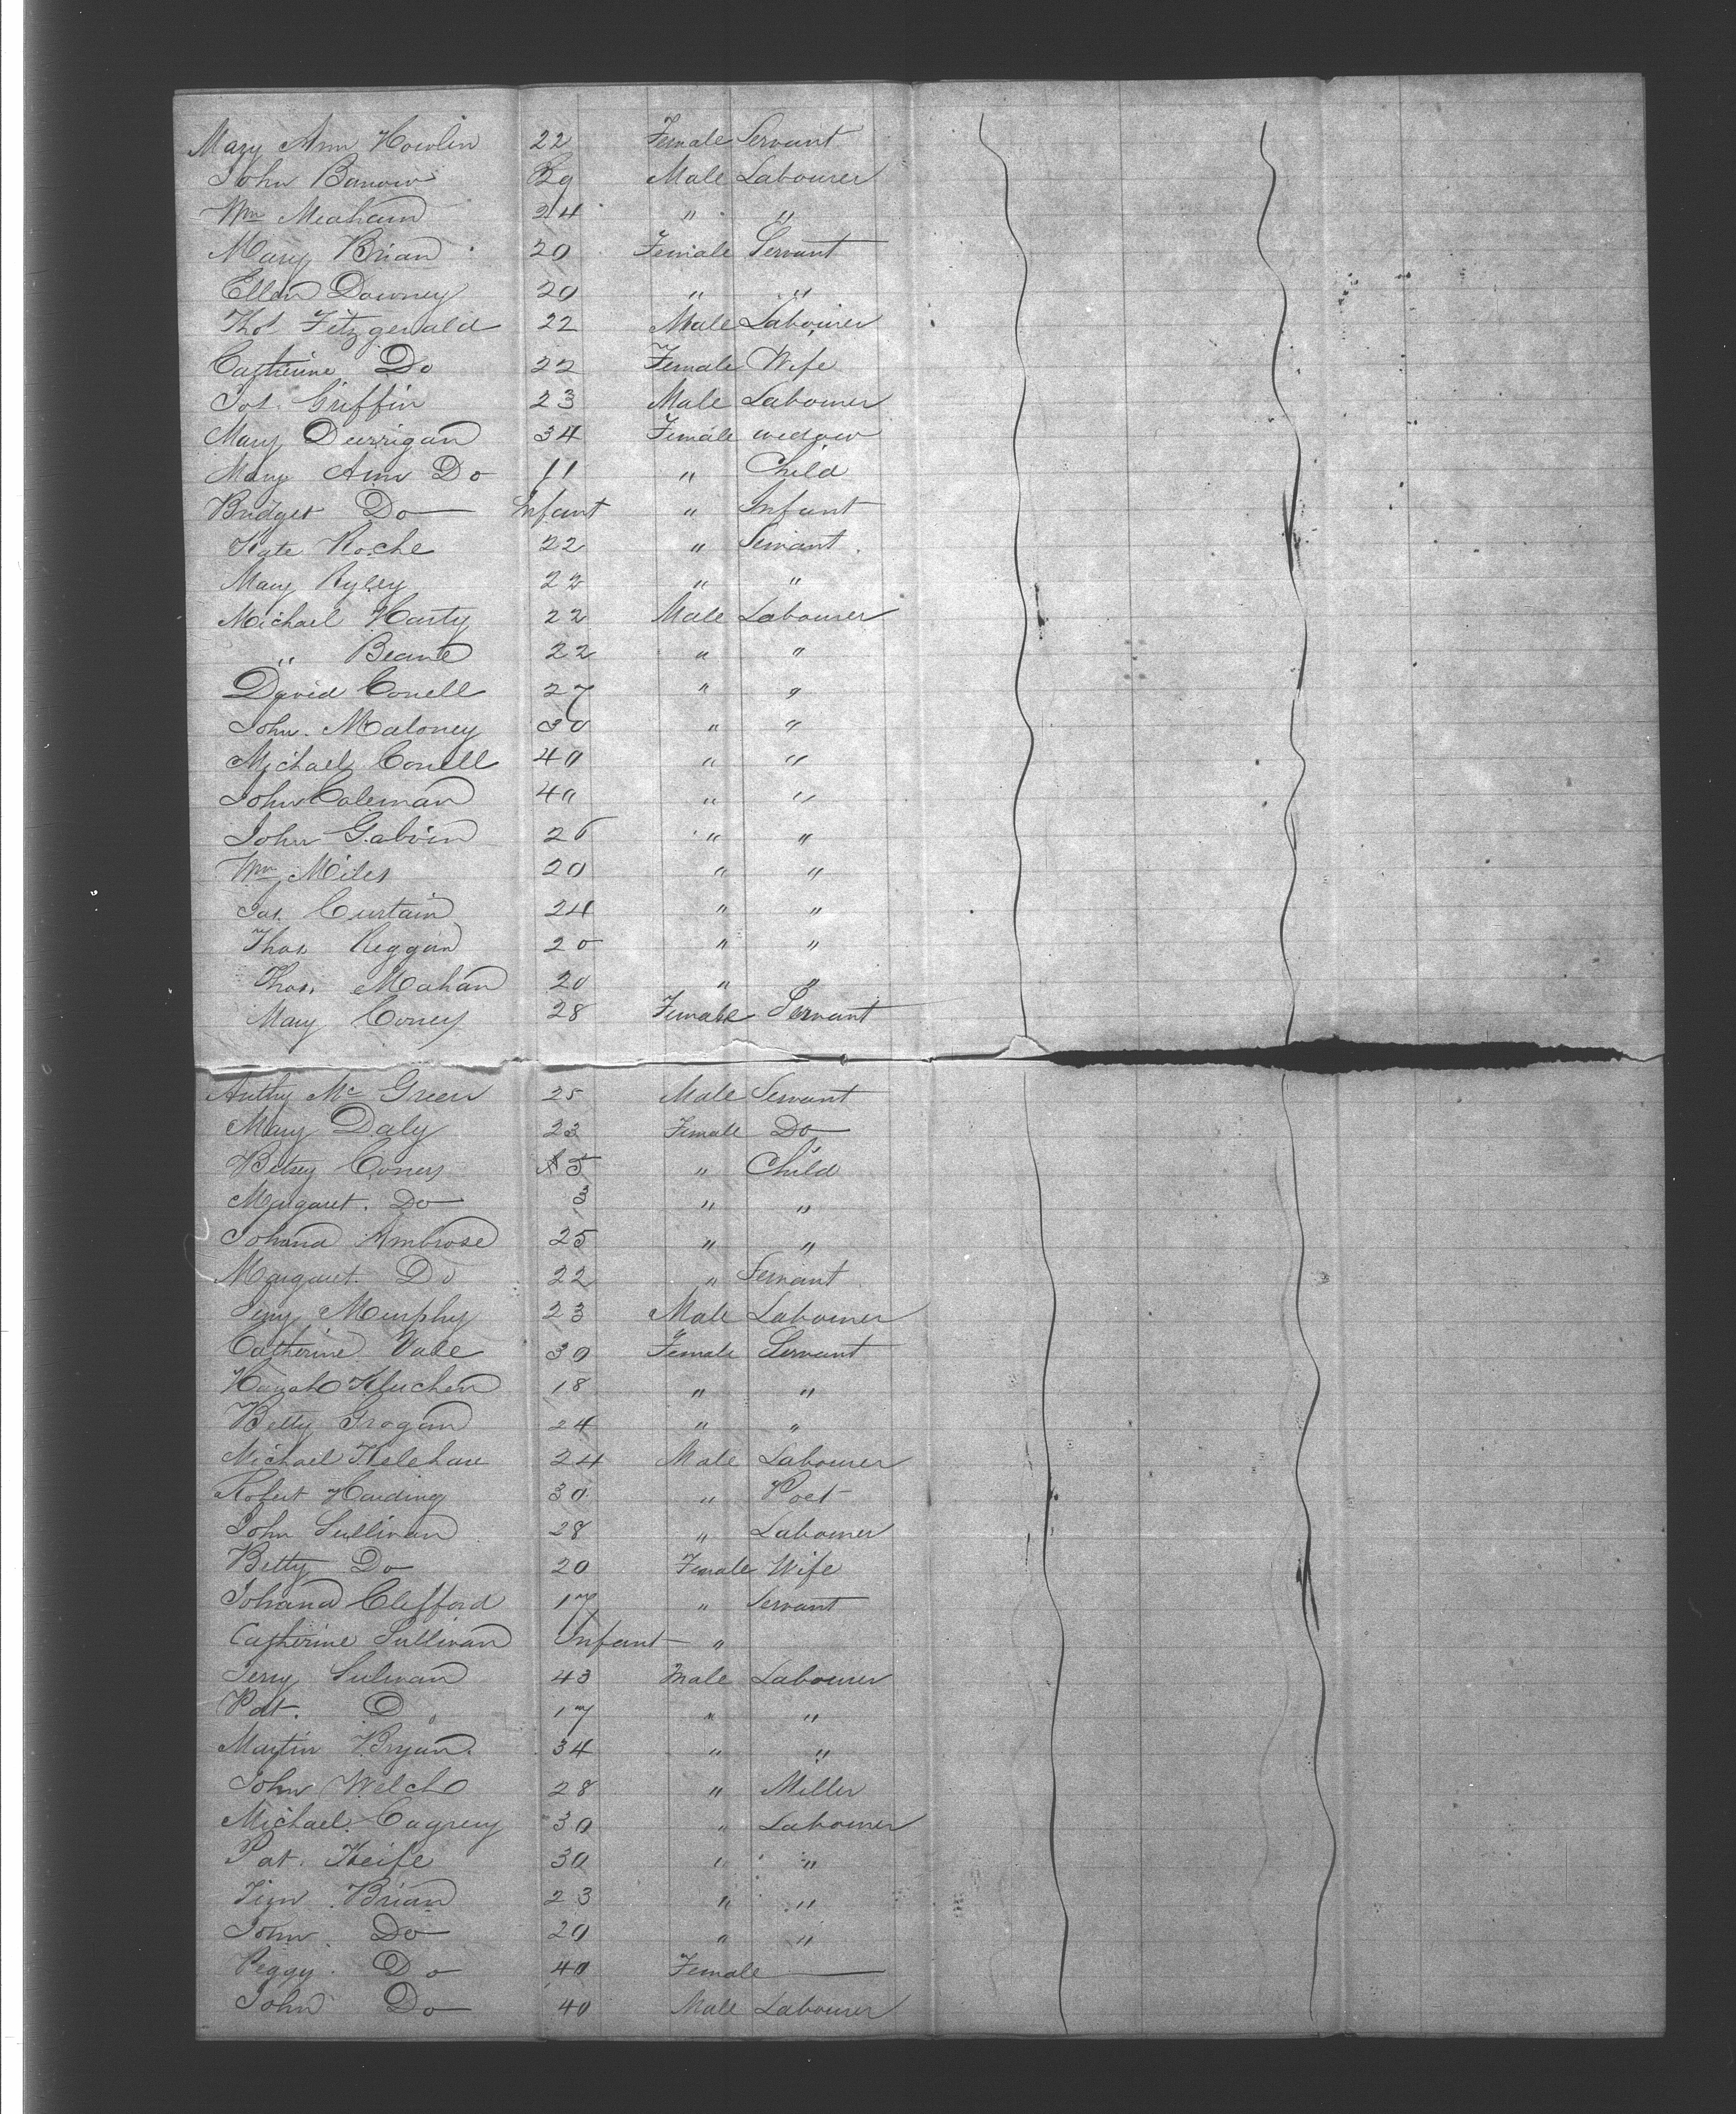 Mary Ann Howlin 22 Female Servant
John Barrow 29 Male Labourer
Wm Meaham 24 " "
Mary Brian 20 Female Servant
Ellen Downey 20 " "
Thos Fitzgerald 22 Male Labourer
Catherine Do 22 Female Wife
Jos. Griffin 23 Male Labourer
Mary Durrigan 34 Female widow
Mary Ann Do 11 " Child
Bridget Do Infant " Infant
Kate Roche 22 " Servant
Mary Ryley 22 " "
Michael Harty 22 Male Labourer
" Beane 22 " "
David Conell 27 " "
John Maloney 30 " "
Michael Conell 40 " "
John Coleman 40 " "
John Galvin 26 " "
Wm Miles 20 " "
Jas. Curtain 24 " "
Thos. Reggan 20 " "
Thos. Mahan 20 " "
Mary Coney 28 Female Servant
Anthy Mc Green 25 Male Servant
Mary Daly 23 Female Do
Betsey Coners 5 " Child
Margaret. Do 3 " "
Johana Ambrose 25 " "
Margaret. Do 22 " Servant
Jery Murphy 23 Male Labourer
Catherine Vale 30 Female Servant
18 " "
Betty Grogan 24 " "
Michael Kelehare 24 Male Labourer
Robert Harding 30 " Poet
John Sullivan 28 " Labourer
Betty Do 20 Female Wife
Johana Clifford 17 " Servant
Catherine Sullivan Infant "
Jerry Sulivan 43 Male Labourer
Pat. D 17 " "
Martin Bryan. 34 " "
John Welch 28 " Miller
Michael Cagney 30 " Labourer
Pat. Keife 30 " "
Tim Brian 23 " "
John Do 20 " "
Peggy. Do 40 Female
John Do 40 Male Labourer